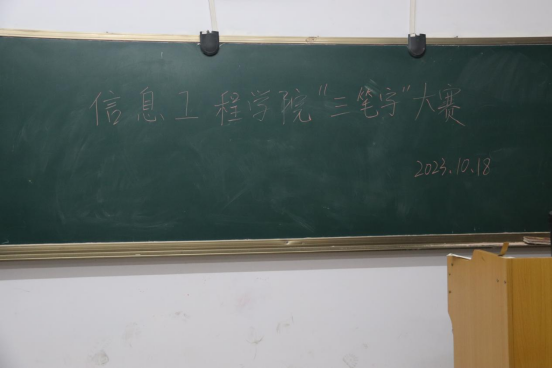 信息工程学院“三笔字”大赛
2023.10.18